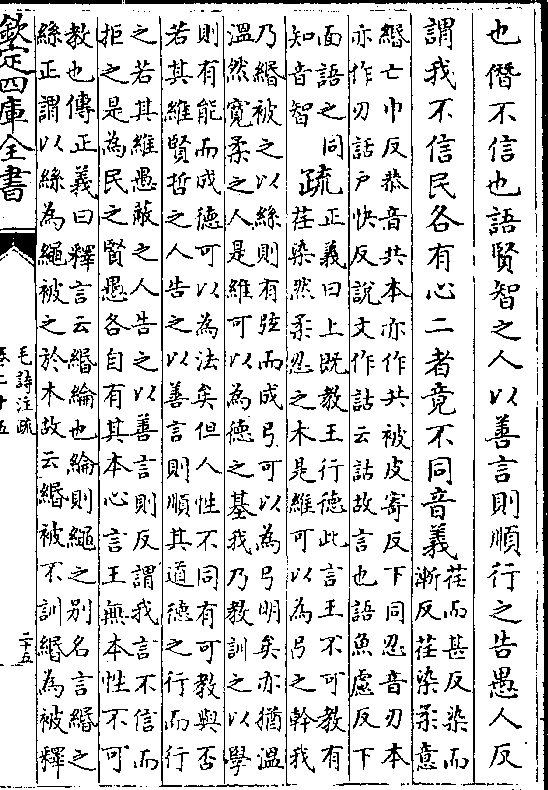 也僭不信也語賢智之人以善言則順行之告愚人反
謂我不信民各有心二者竟不同音義荏而甚反染而
漸反荏染柔意
緡亡巾反恭音共本亦作共被皮寄反下同忍音刃本
亦作刃話户快反説文作詁云詁故言也語魚慮反下
面語之同
知音智
疏正義曰上既教王行德此言王不可教有
荏染然柔忍之木是維可以為弓之幹我
乃緡被之以絲則有弦而成弓可以為弓明矣亦猶溫
溫然寛柔之人是維可以為德之基我乃教訓之以學
則有能而成德可以為法矣但人性不同有可教與否
若其維賢哲之人告之以善言則順其道德之行而行
之若其維愚蔽之人告之以善言則反謂我言不信而
拒之是為民之賢愚各自有其本心言王無本性不可
教也傳正義曰釋言云緡綸也綸則繩之别名言緡之
絲正謂以絲為繩被之於木故云緡被不訓緡為被釋
欽定四庫全書
毛詩注疏
卷二十五
二十五